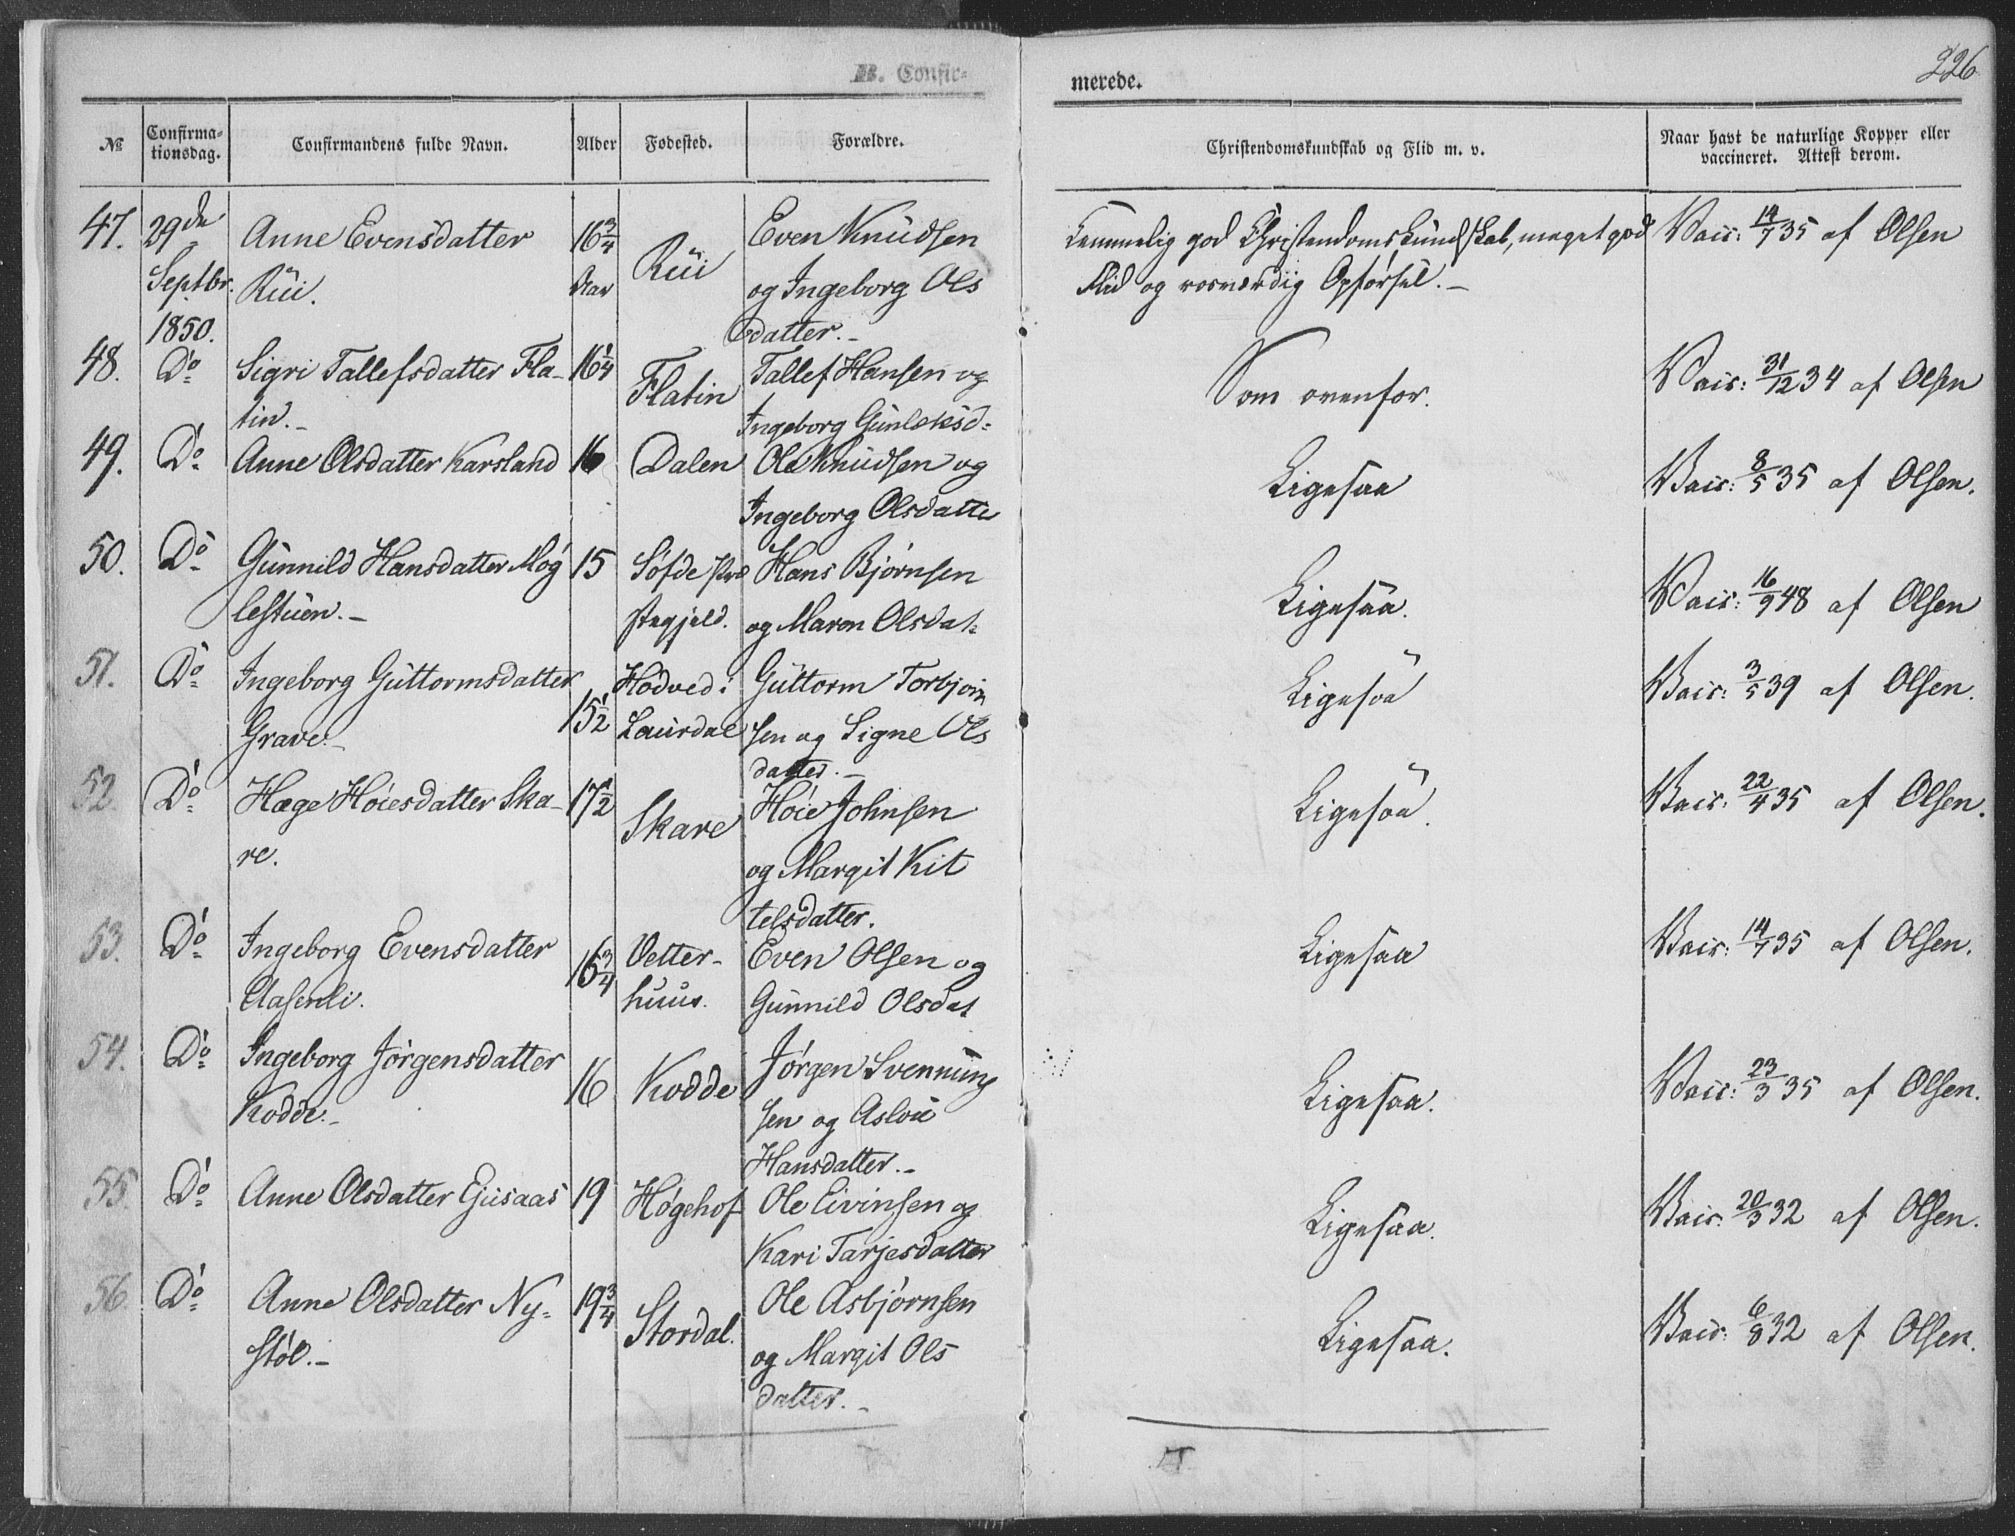 B. Confir- merede. 226
№ Confirma-tionsdag. Confirmandens fulde Navn. Alder Fødested. Forældre. Christendomskundskab og Flid m. v. Naar havt de naturlige Kopper eller vaccineret. Attest derom.
47. 29de Anne Evensdatter 16 3/4 Rüi Even Knüdsen Temmelig god Christendomskündskab, meget god Vacc: 14/7 35 af Olsen
Septbr. Rüi. Aar og Ingeborg Ols Flid og rosværdig Opførsel.-
1850. datter.-
48. Do Sigri Tallefsdatter Fla- 16 1/4 Flatin Tallef Hansen og Som ovenfor. Vacc: 31/12 34 af Olsen
tin.- Ingeborg Günleksd=
49. Do Anne Olsdatter Karsland 16 Dalen Ole Knüdsen og Ligesaa Vacc: 8/5 35 af Olsen.
Ingeborg Olsdatte
50. Do Günnild Hansdatter Møg 15 Søfde Præ Hans Bjørnsen Ligesaa. Vacc: 16/9 48 af Olsen
lestüen.- stegjeld. og Maren Olsdat=
51. Do Ingeborg Güttormsdatter 15 1/2 Hodved i Güttorm Torbjørn Ligesaa Vacc: 3/5 39 af Olsen.
Grave.- Laurdal sen og Signe Ols
datter.-
52. Do Hæge Høiesdatter Ska- 17 1/2 Skare Høie Johnsen Ligesaa. Vacc: 22/4 35 af Olsen.
re. og Margit Kit
telsdatter.
53. Do Ingeborg Evensdatter 16 3/4 Vetter- Even Olsen og Ligesaa Vacc: 14/7 35 af Olsen.
huus. Günnild Olsdat
54. Do Ingeborg Jørgensdatter 16 Kodde Jørgen Svennüng Ligesaa. Vacc: 23/3 35 af Olsen.
Kodde.- sen og Aslou
Hansdatter.-
55. Do Anne Olsdatter Ejüsaas 19 Høgehof Ole Eivinsen og Ligesaa. Vacc: 20/3 32 af Olsen.
Kari Tarjesdatter
56. Do Anne Olsdatter Ny= 19 3/4 Stordal. Ole Asbjørnsen Ligesaa. Vacc: 6/8 32 af Olsen.
støl.- og Margit Ols
datter.-